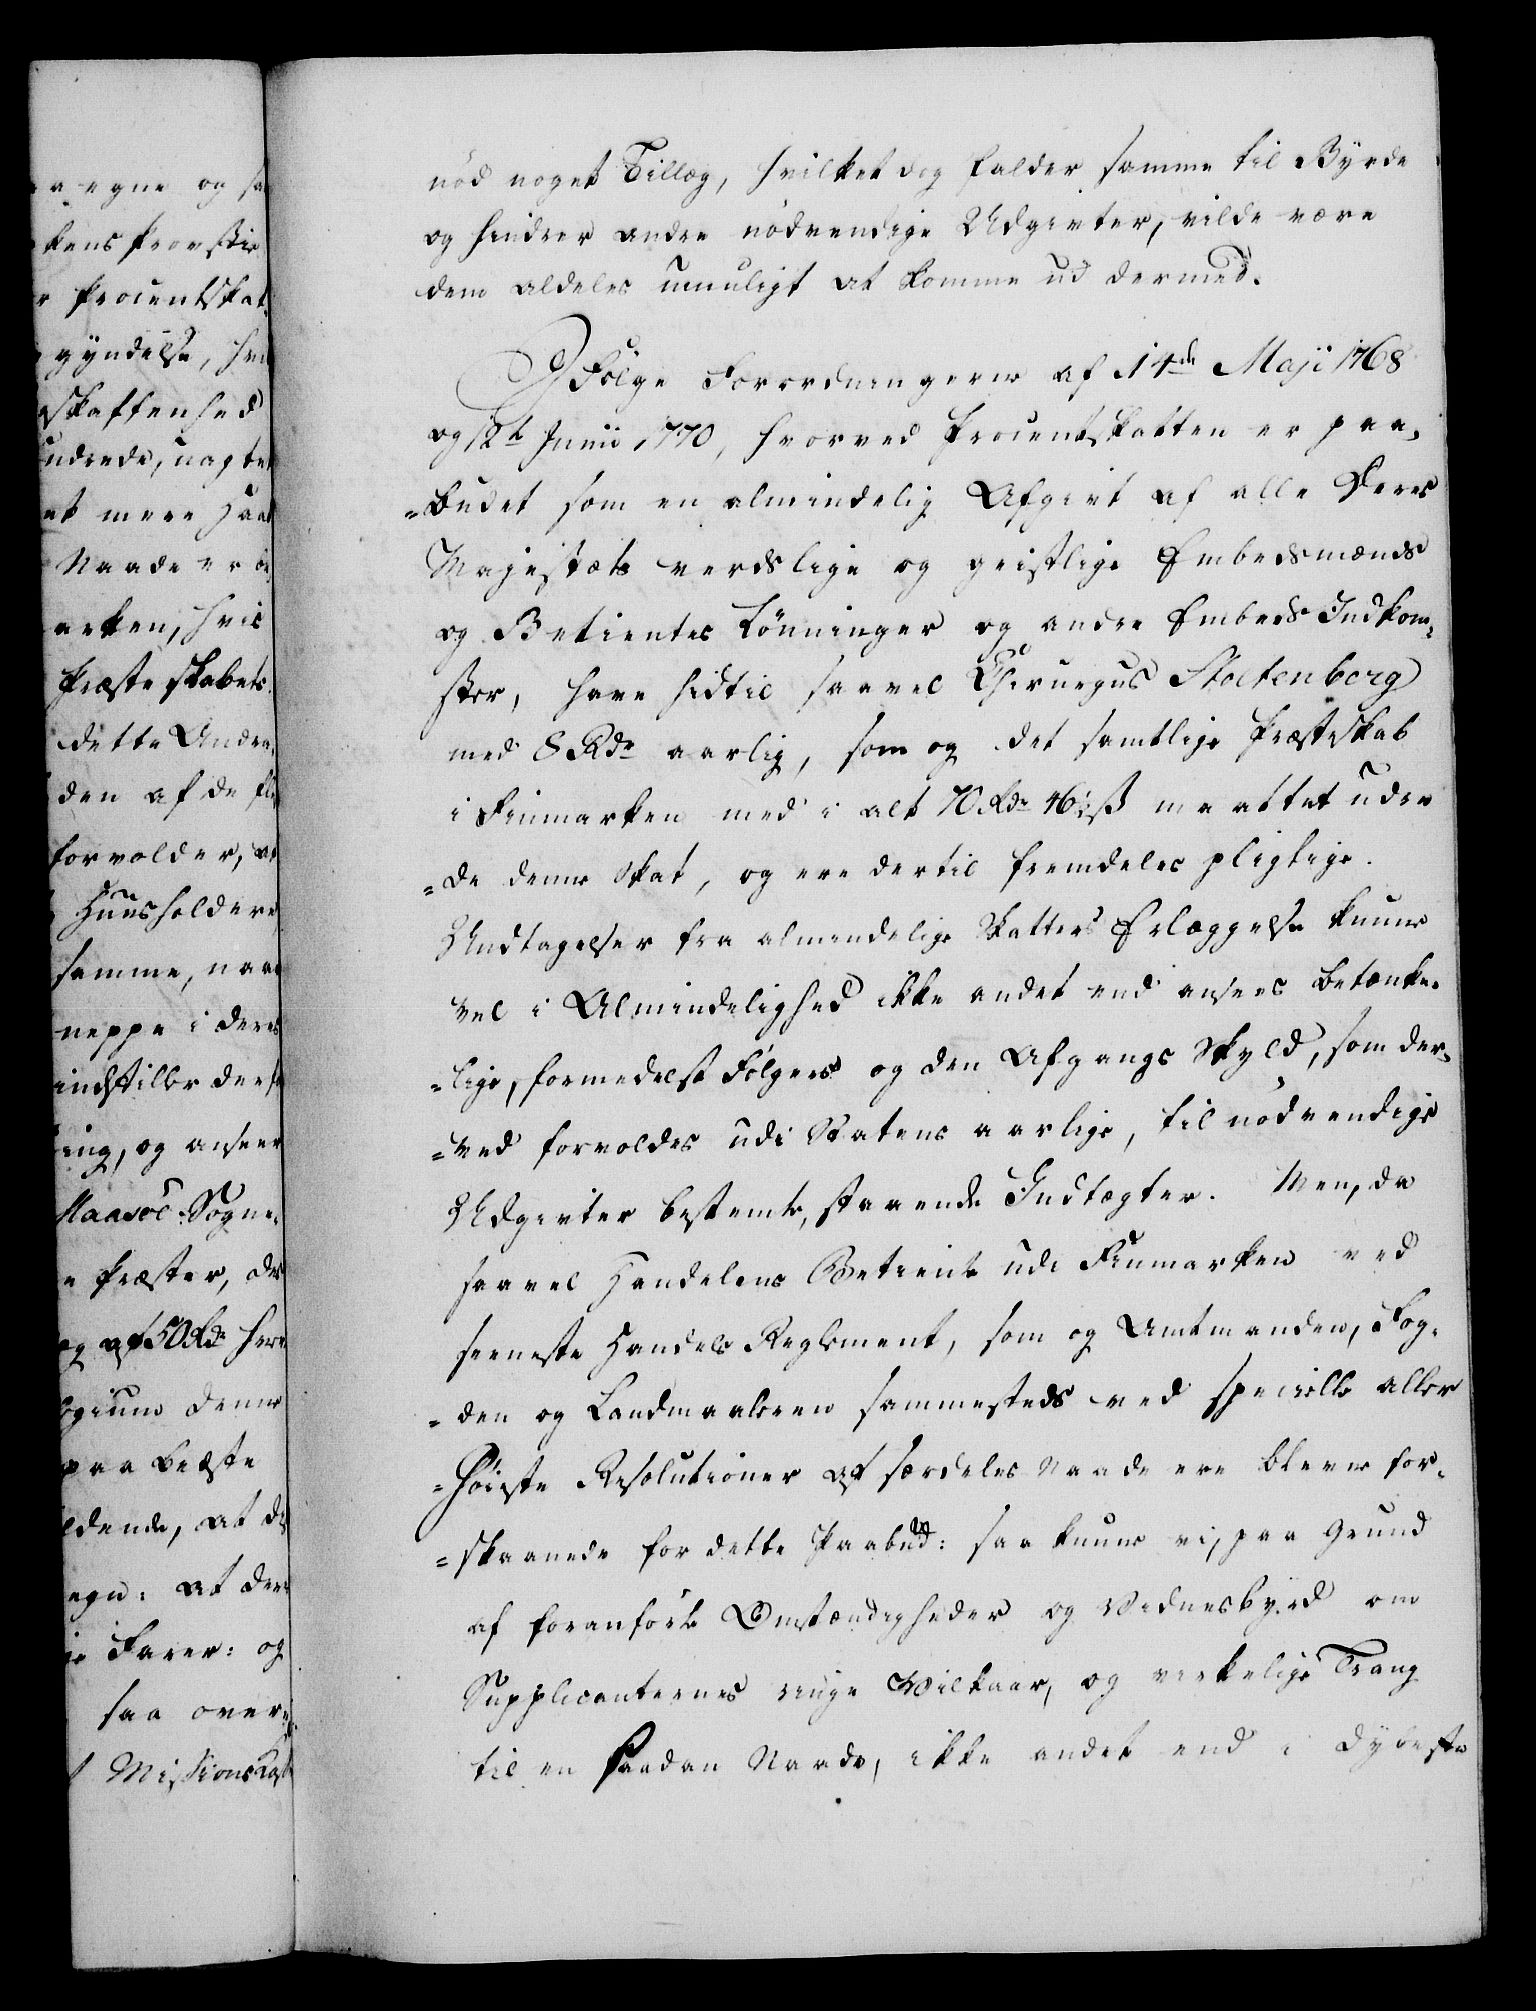 nød noget Tillæg, hvilket dog falder samme til Byrde
og hindrer andre nødvendige Udgivter, vilde være
dem aldeles umuligt at komme ud dermed.
I Følge Forordningerne af 14de Maji 1768
og 12te Junii 1770, hvorved Procentskatten er paa-
=budet som en almindelig Afgivt af alle Deres
Majestæts verdslige og geistlige Embedsmænds
og Betientes Lønninger og andre Embeds Indkom-
ster, have hidtil saavel Chirurgus Stoltenberg
med 8 Rdr aarlig, som og det samtlige Præsteskab
i Finmarken med i alt 70 Rdr 46½ ß maattet udre-
=de denne Skat, og ere dertil fremdeles pligtige.
Undtagelser fra almindelige Skatters Erlæggelse kunne
vel i Almindelighed ikke andet end ansees betænke-
=lige, formedelst Følgers og den Afgangs Skyld, som der-
=ved forvoldes udi Statens aarlige, til nødvendige
Udgivter bestemte, staaende Indtægter. Men, da
saavel Handelens Betiente udi Finmarken ved
seeneste Handels Reglement, som og Amtmanden, Fog-
=den og Landmaaleren sammesteds ved specielle aller
=høieste Resolutioner af særdeles Naade ere blevne for-
=skaanede for dette Paabud: saa kunne vi, paa Grund
af foranførte Omstændigheder og Vidnesbyrd om
Supplicanternes ringe Vilkaar, og virkelige Trang
til en saadan Naade, ikke andet end i dybeste